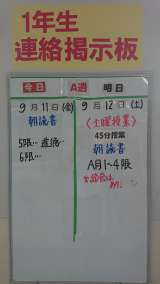 1年生
連絡掲示板
今日 A週 明日
9月11日(金)
朝読書
5限…
6限…
9月12日(土)
〈土曜授業〉
45分授業
朝読書
A月1~4限